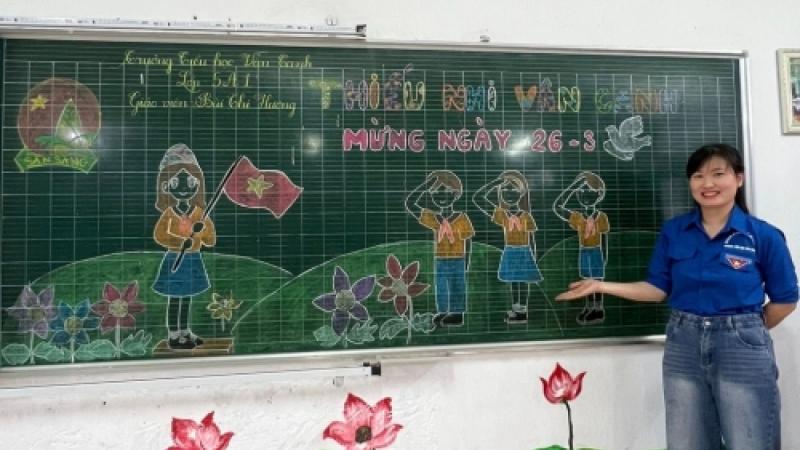 Trường Tiểu học Vân Canh
Lớp 5A1
Giáo viên Bùi Thị Hương
THIẾU NHI VÂN CANH
MỪNG NGÀY 26-3
SẴN SÀNG